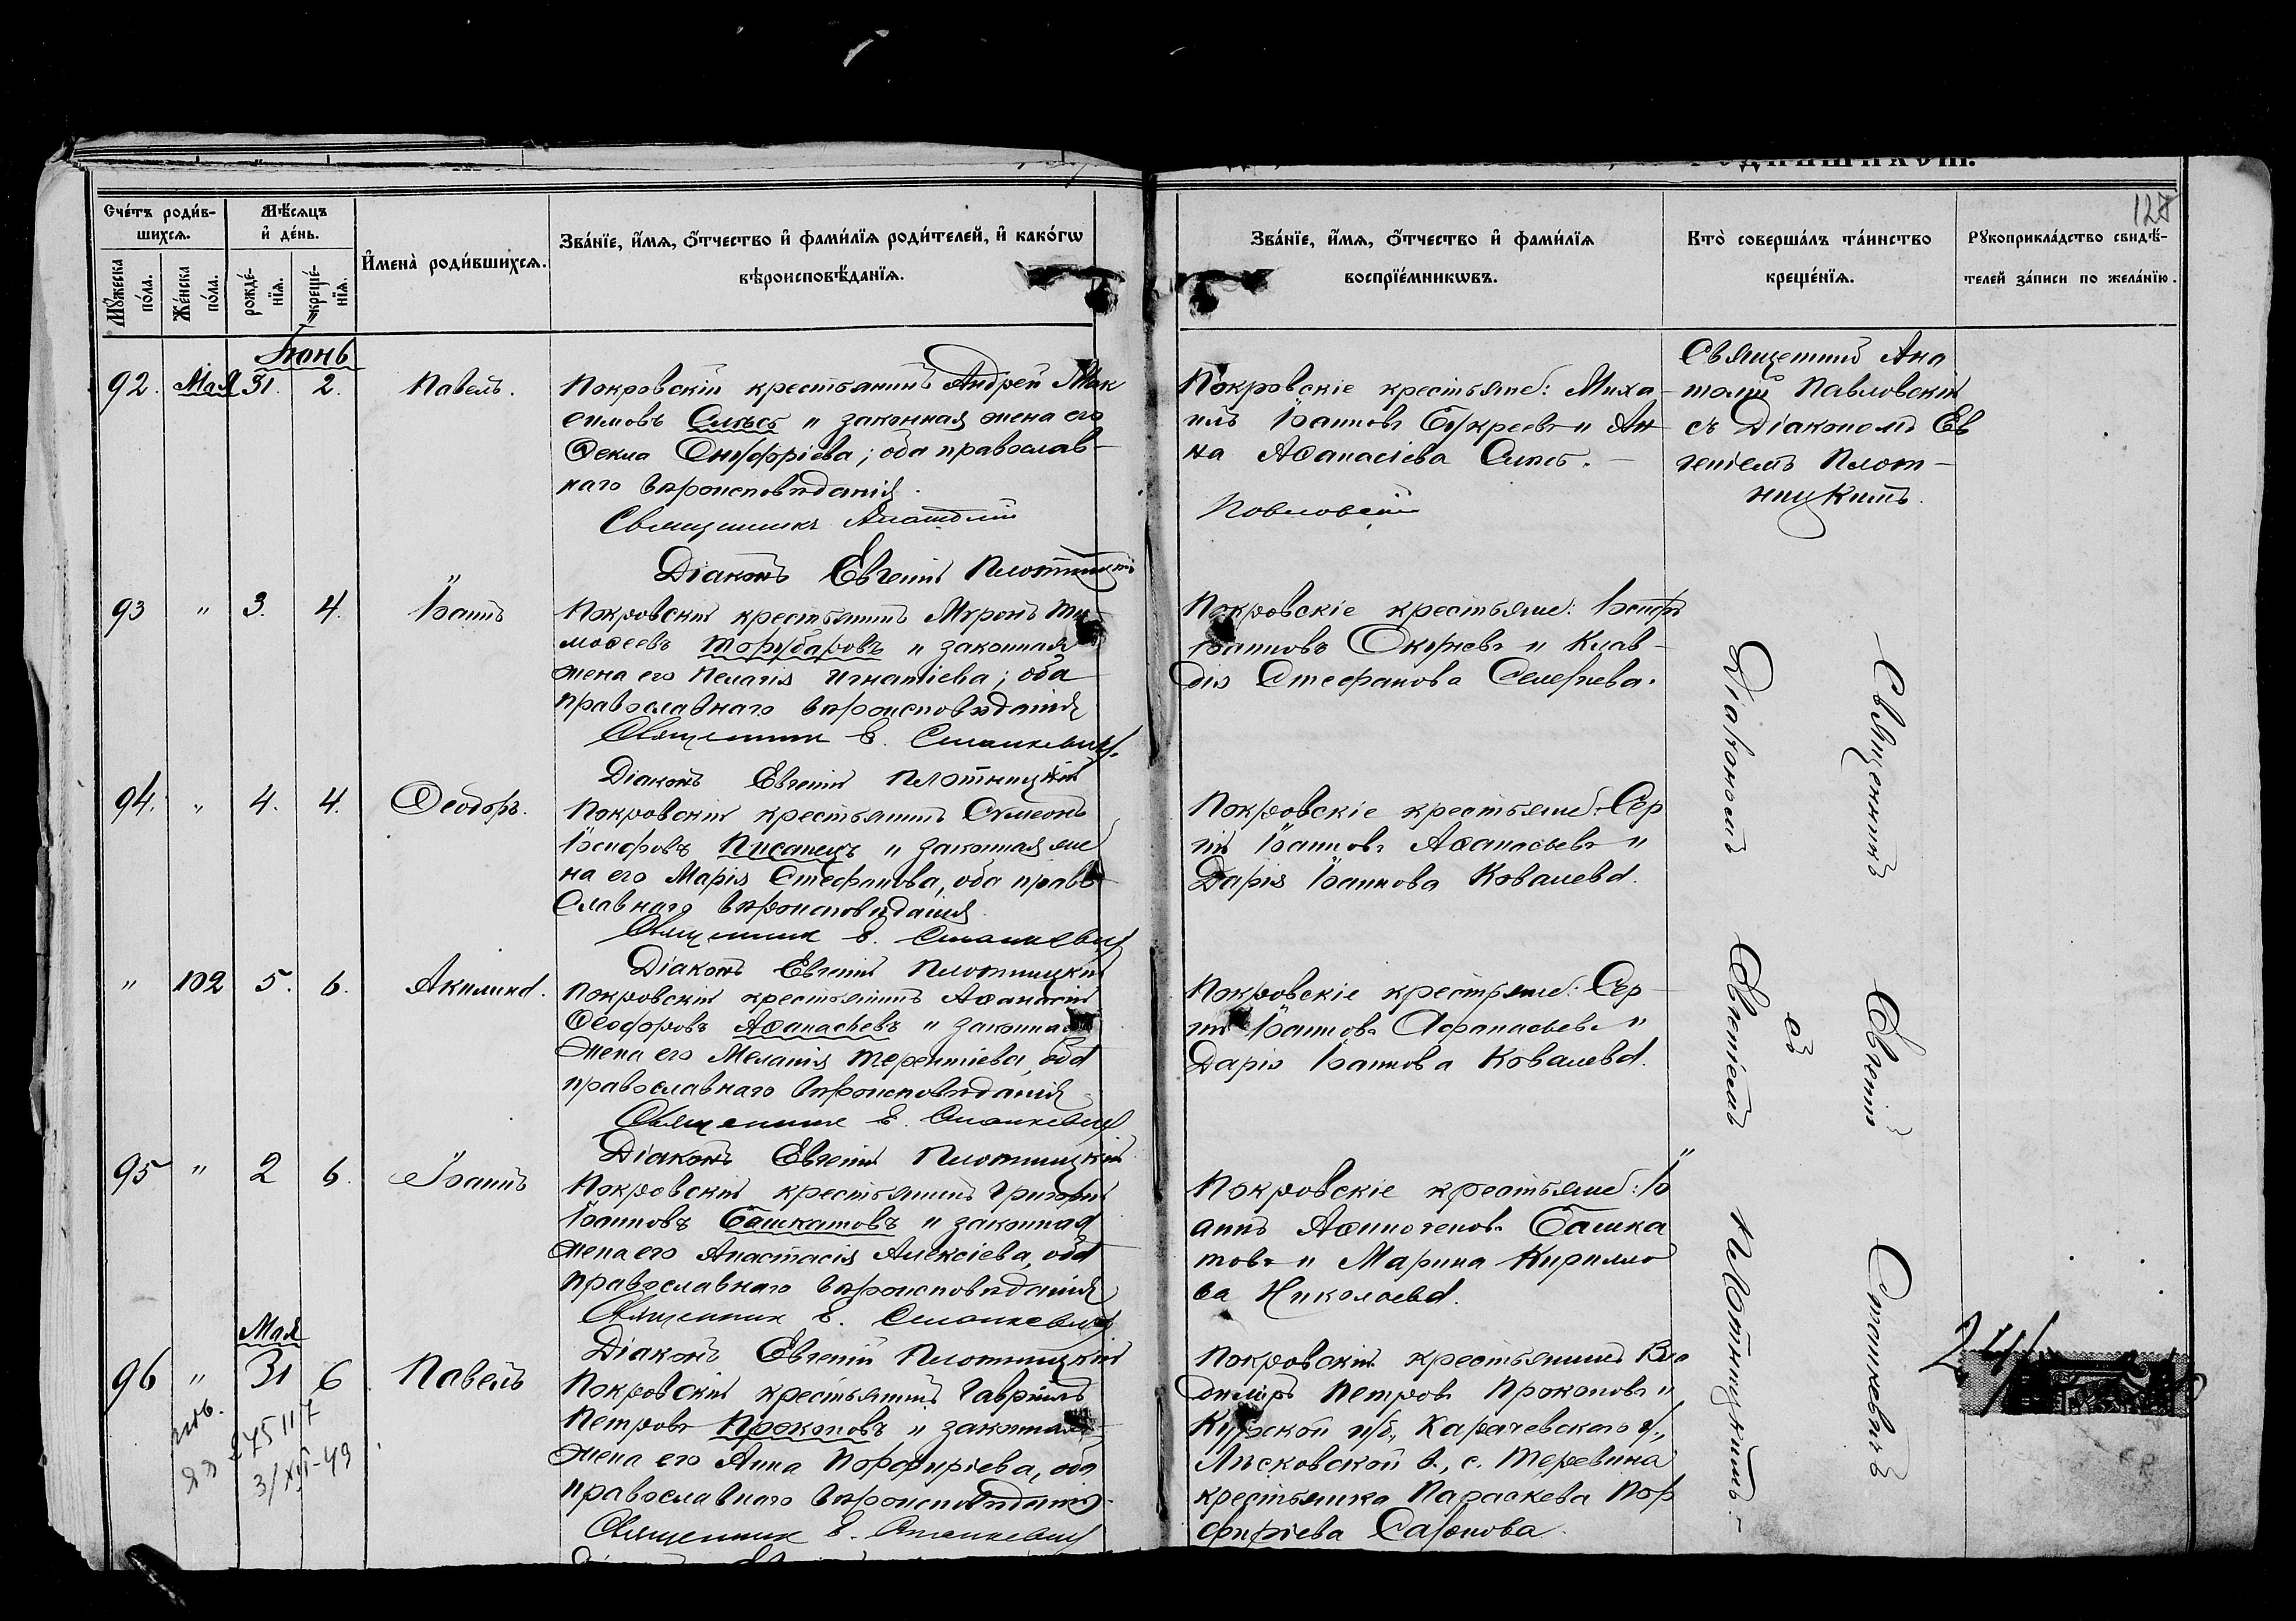 128
Счетъ родив-
шихся.
Мѣсяцъ
и день.
Имена родившихся.
Званіе, имя, отчество и фамилія родителей, и какогω
вѣроисповѣданія.
Званіе, имя, отчество и фамилія
воспріемникωвъ.
Кто совершалъ таинство
крещенія.
Рукоприкладство свидѣ-
телей записи по желанію.
Мужеска
пола.
Женска
пола.
рожде-
нія.
креще-
нія.
Іюнь
92. Мая 31. 2. Павелъ.
Покровскій крестьянинъ Андрей Мак
симовъ и законная жена его
Ѳекла Онуфріева; оба православ-
наго вѣроисповѣданія.
Священникъ Анатолій
Діаконъ Евгеній Плотницкій
Покровскіе крестьяне: Миха-
илъ Іоанновъ и Ан-
на Аѳанасіева
Павловскій
Священникъ Ана
толій Павловскій
съ Діакономъ Ев
геніемъ Плот-
ницкимъ.
93 " 3. 4. Іоаннъ
Покровскій крестьянинъ Миронъ Ти-
моѳеевъ Торубаровъ и законная
жена его Пелагія Игнатіева; оба
православнаго вѣроисповѣданія
Священникъ Е. Станкевичъ.
Діаконъ Евгеній Плотницкій
Покровскіе крестьяне: Іосифъ
Іоанновъ и Клав-
дія Стефанова
94. " 4. 4. Ѳеодоръ.
Покровскій крестьянинъ Симеонъ
Іосифовъ Писанецъ и законная же
на его Марія Стефанова, оба право
славнаго вѣроисповѣданія.
Священникъ Е. Станкевичъ
Діаконъ Евгеній Плотницкій
Покровскіе крестьяне: Сер
гій Іоанновъ Аѳанасьевъ и
Дарія Іоаннова Ковалева.
" 102 5. 6. Акилина.
Покровскій крестьянинъ Аѳанасій
Ѳеодоровъ Аѳанасьевъ и законная
жена его Меланія Терентіева, оба
православнаго вѣроисповѣданія.
Священникъ Е. Станкевичъ
Діаконъ Евгеній Плотницкій
Покровскіе крестьяне: Сер-
гій Іоанновъ Афанасьевъ и
Дарія Іоаннова Ковалева.
95 " 2 6. Іоаннъ
Покровскій крестьянинъ Григорій
Іоанновъ Башкатовъ и законная
жена его Анастасія Алексіева, оба
православнаго вѣроисповѣданія
Священникъ Е. Станкевичъ
Діаконъ Евгеній Плотницкій
Покровскіе крестьяне: Іо
аннъ Аѳиногеновъ Башка
товъ и Марина Кирилло
ва Николаева.
Мая
96 " 31 6 Павелъ
Покровскій крестьянинъ Гавріилъ
Петровъ Прокоповъ и законная
жена его Анна Порфиріева, оба
православнаго вѣроисповѣданія.
Священникъ Е. Станкевичъ
Покровскій крестьянинъ Вла
диміръ Петровъ Прокоповъ и
Курской губ., Карачевскаго у.,
с. Теревина
крестьянка Параскева Пор
фиріева Сафонова.
Священникъ Евгеній Станкевичъ
съ
Діакономъ Евгеніемъ Плотницкимъ.-